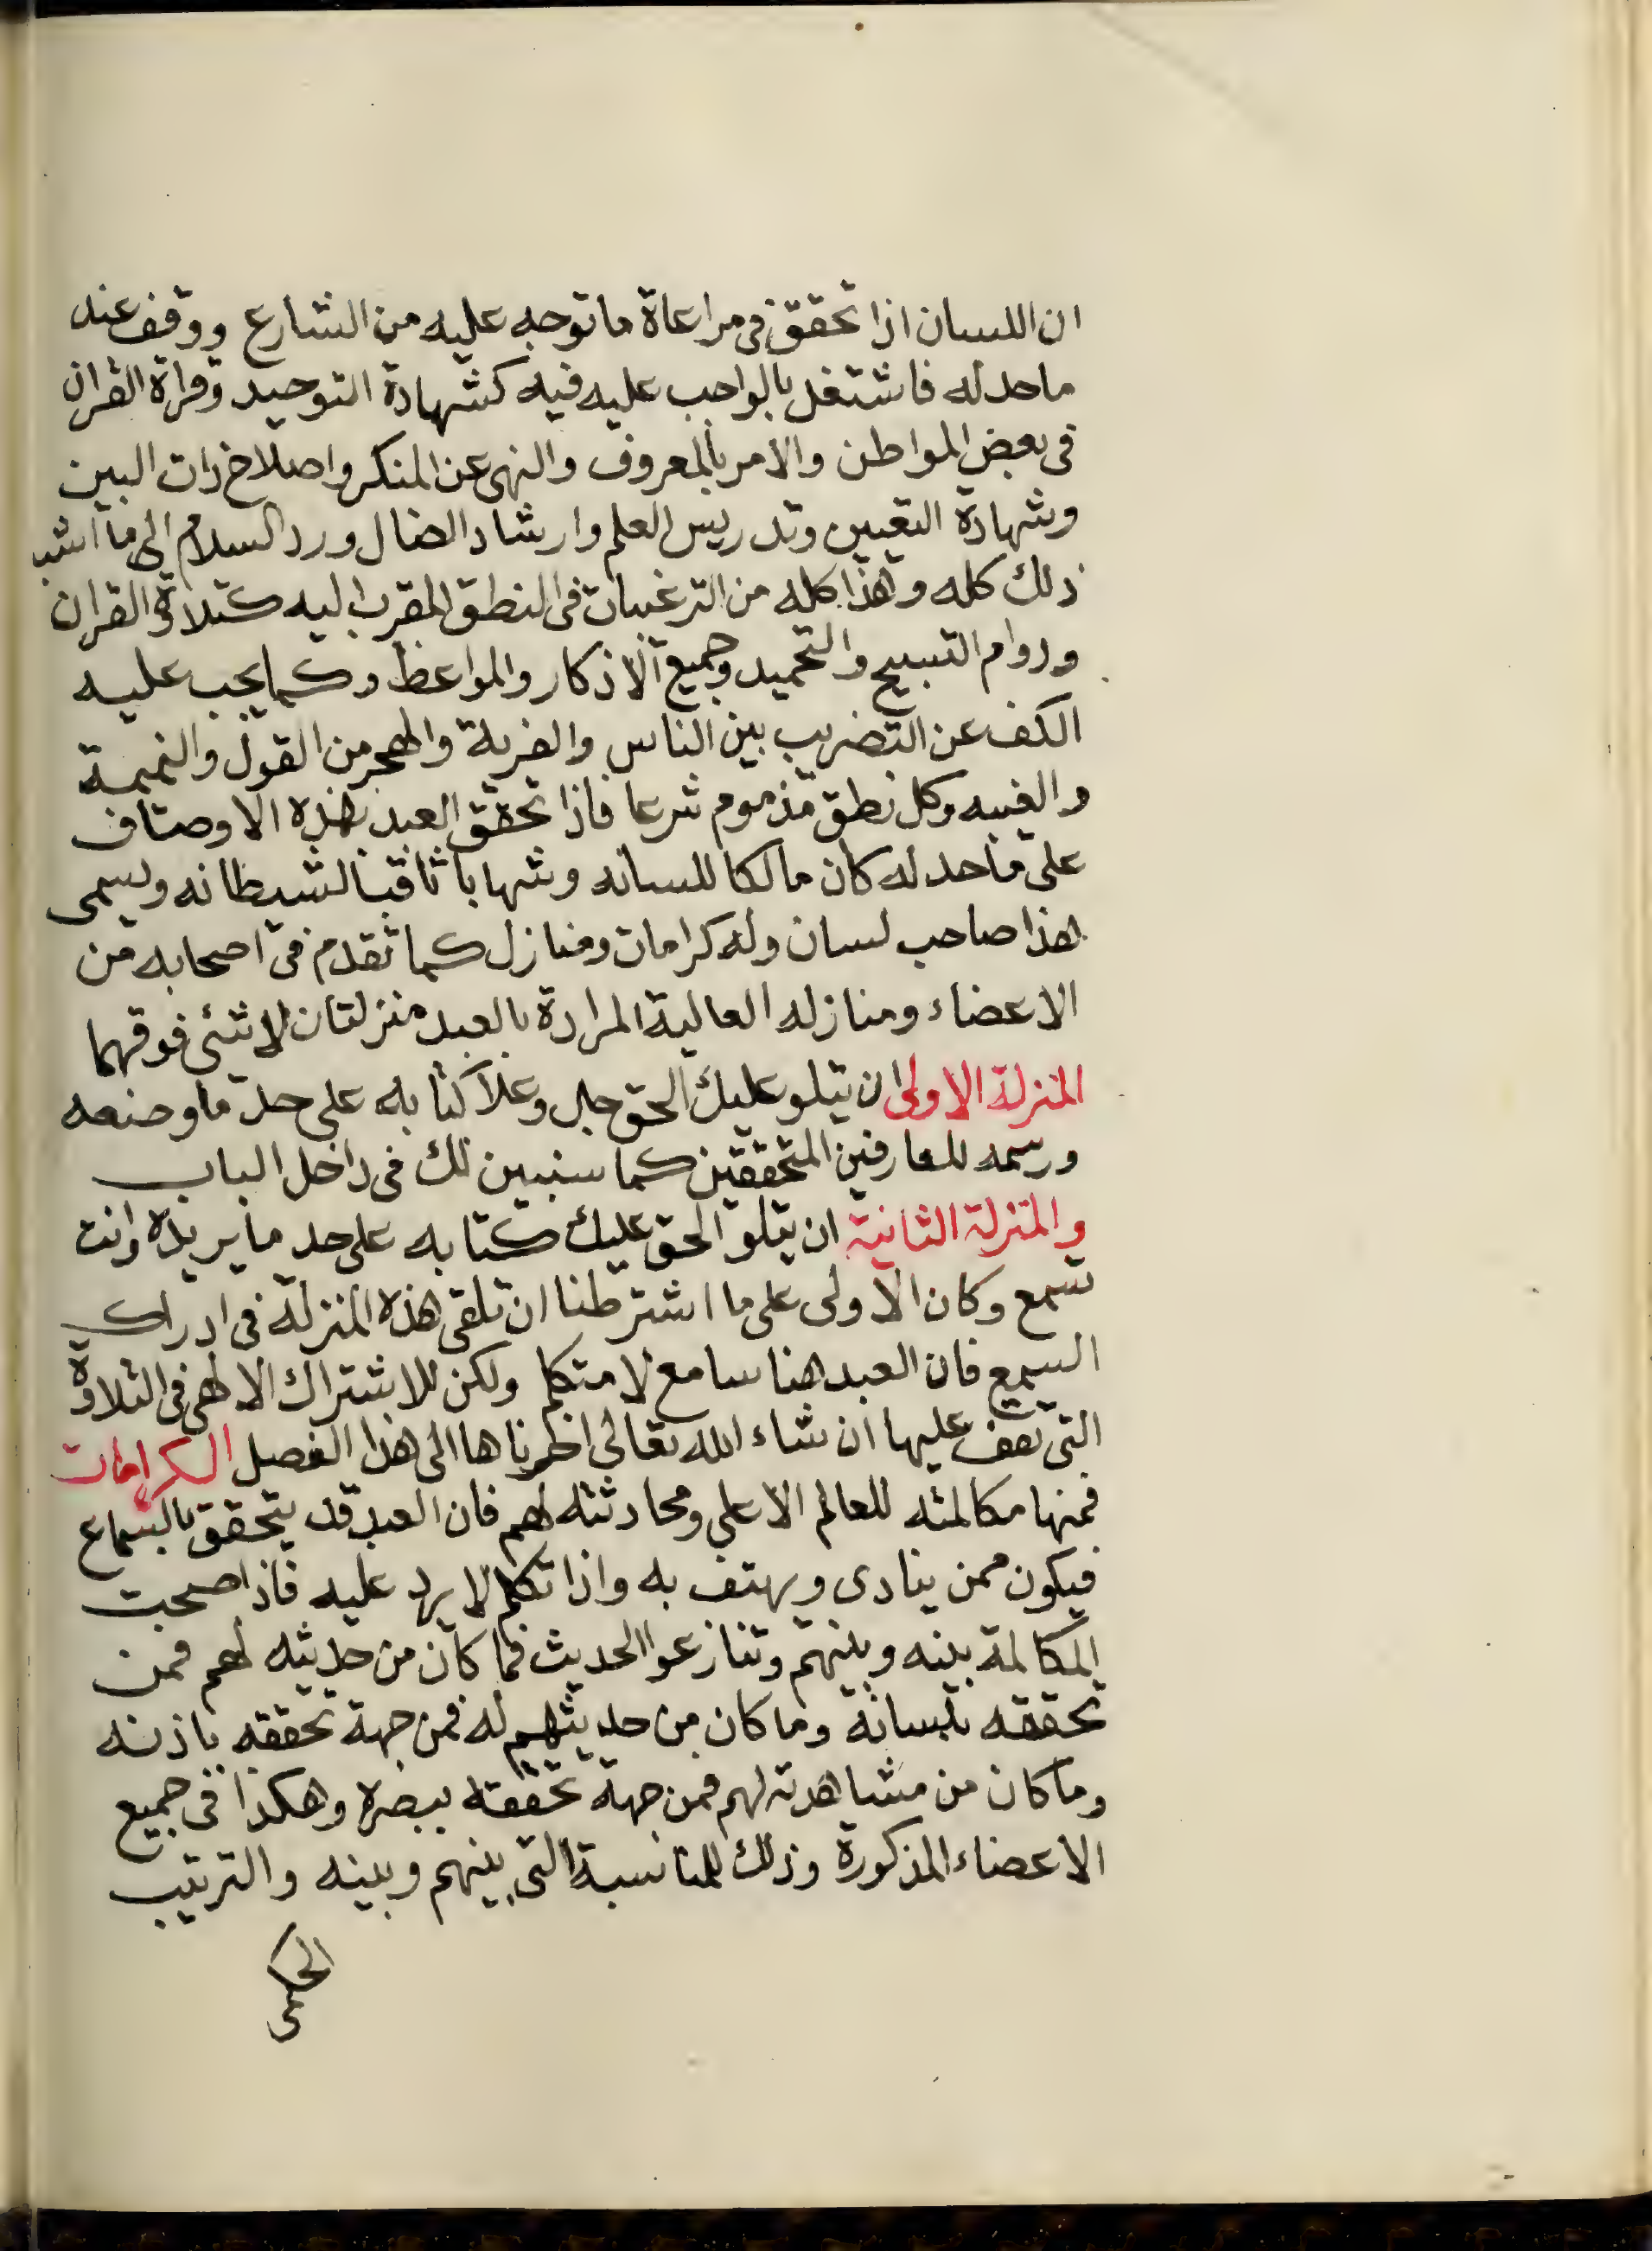 ان اللسان اذا تحقق في مراعاة ما توجه عليه من الشارع ووقف عند
ما حد له فاشتغل بالواجب عليه فيه كشهادة التوحيد وقراة القران
في بعض المواطن والامر بالمعروف والنهى عن المنكر واصلاح ذات البين
وشهادة التعيين وتدريس العلم وارشاد الضال ورد السلام الى ما اشبه
ذلك كله وهذا كله من الترغيبات في النطق المقرب اليه كتلاوة القران
ودوام التسبيح والتحميد وجميع الاذكار والمواعظ وكما يجب عليه
الكف عن التضريب بين الناس والفرية والهجر من القول والنميمة
والغيبه وكل نطق مذموم شرعا فاذا تحقق العبد بهذه الاوصاف
على ما حد له كان مالكا للسانه وشهابا ثاقبا لشيطانه ويسمى
هذا صاحب لسان وله كرامات ومنازل كما تقدم في اصحابه من
الاعضاء ومنازله العالية المرادة بالعبد منزلتان لا شئ فوقهما
المنزلة الاولى ان يتلو عليك الحق جل وعلا كتابه على حد ما وضعه
ورسمه للعارفين المتحققين كما سنبين لك في داخل الباب
والمنزلة الثانية ان يتلو الحق عليك كتابه على حد ما يريده وانت
تسمع وكان الاولى على ما اشترطنا ان تلقى هذه المنزلة في ادراك
السمع فان العبد هنا سامع لا متكلم ولكن للاشتراك الالهى في التلاوة
التي تقف عليها ان شاء الله تعالى اخرناها الى هذا الفصل الكرامات
فمنها مكالمته للعالم الاعلى ومحادثته لهم فان العبد قد يتحقق بالسماع
فيكون ممن ينادى ويهتف به واذا تكلم لا يرد عليه فاذا صحت
المكالمة بينه وبينهم وتنازعوا الحديث فما كان من حديثه لهم فمن
تحققه بلسانه وما كان من حديثهم له فمن جهة تحققه باذنه
وما كان من مشاهدته لهم فمن جهة تحققه ببصره وهكذا في جميع
الاعضاء المذكورة وذلك للمناسبة التي بينهم وبينه والترتيب
الحكمى